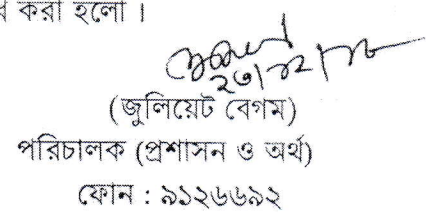 করা হলো।
২৩/১২/১৮
(জুলিয়েট বেগম)
পরিচালক (প্রশাসন ও অর্থ)
ফোন : ৯১২৬৬৯২